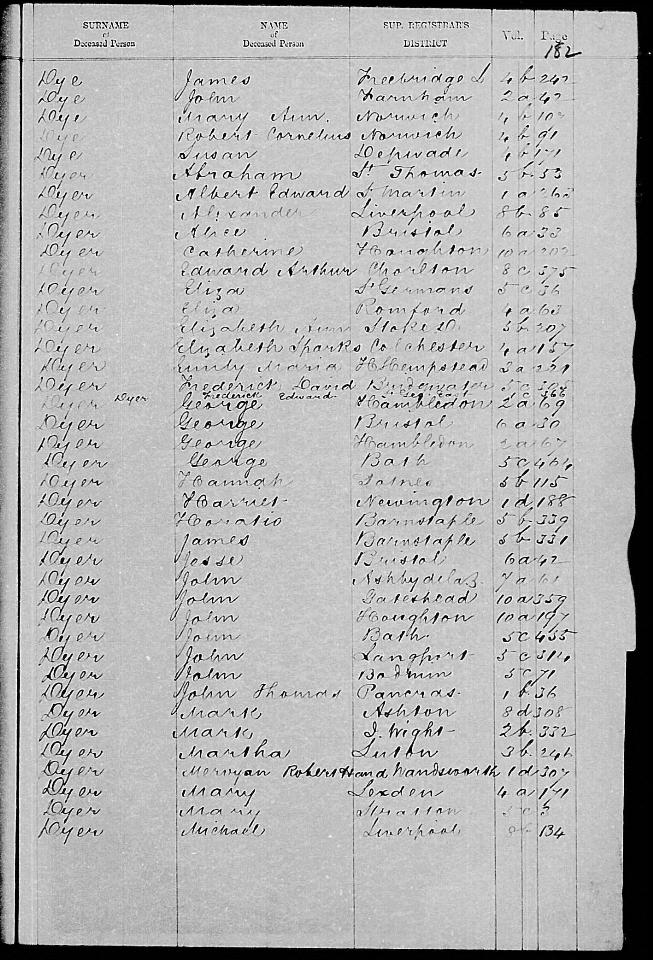 SURNAME of Deceased Person NAME of Deceased Person SUP. REGISTRAR'S DISTRICT Vol. Page
182
Dye James Freebridge L 4b 242
Dye John Farnham 2a 42
Dye Mary Ann. Norwich 4b 103
Dye Robert Cornelius Norwich 4b 91
Dye Susan Depwade 4b 171
Dyer Abraham St Thomas 5b 53
Dyer Albert Edward St Martin 1a
Dyer Alexander Liverpool 8b 85
Dyer Alice Bristol 6a 33
Dyer Catherine Houghton 10a 202
Dyer Edward Arthur Chorlton 8c 375
Dyer Eliza St Germans 5c 36
Dyer Eliza Romford 4a 63
Dyer Elizabeth Ann Stoke D. 5b 207
Dyer Elizabeth Sparks Colchester 4a 157
Dyer Emily Maria H. Hempstead 3a 221
Dyer Frederick David Bridgwater 5c
Dyer Frederick Edward 1c 366
Dyer George Hambledon 2a 69
Dyer George Bristol 6a 30
Dyer George Hambledon 2a 67
Dyer George Bath 5c 464
Dyer Hannah Totnes 5b 115
Dyer Harriet Newington 1d 188
Dyer Horatio Barnstaple 5b 339
Dyer James Barnstaple 5b 331
Dyer Jesse Bristol 6a 42
Dyer John Ashby de la Z. 7a 61
Dyer John Gateshead 10a 359
Dyer John Houghton 10a 197
Dyer John Bath 5c 455
Dyer John Langport 5c 314
Dyer John Bodmin 5c 71
Dyer John Thomas Pancras 1b 36
Dyer Mark Ashton 8d 308
Dyer Mark I. Wight 2b 332
Dyer Martha Luton 3b 246
Dyer Mervyan Robert Hand Wandsworth 1d 307
Dyer Mary Lexden 4a 171
Dyer Mary Stratton 5c 5
Dyer Michael Liverpool 8b 134